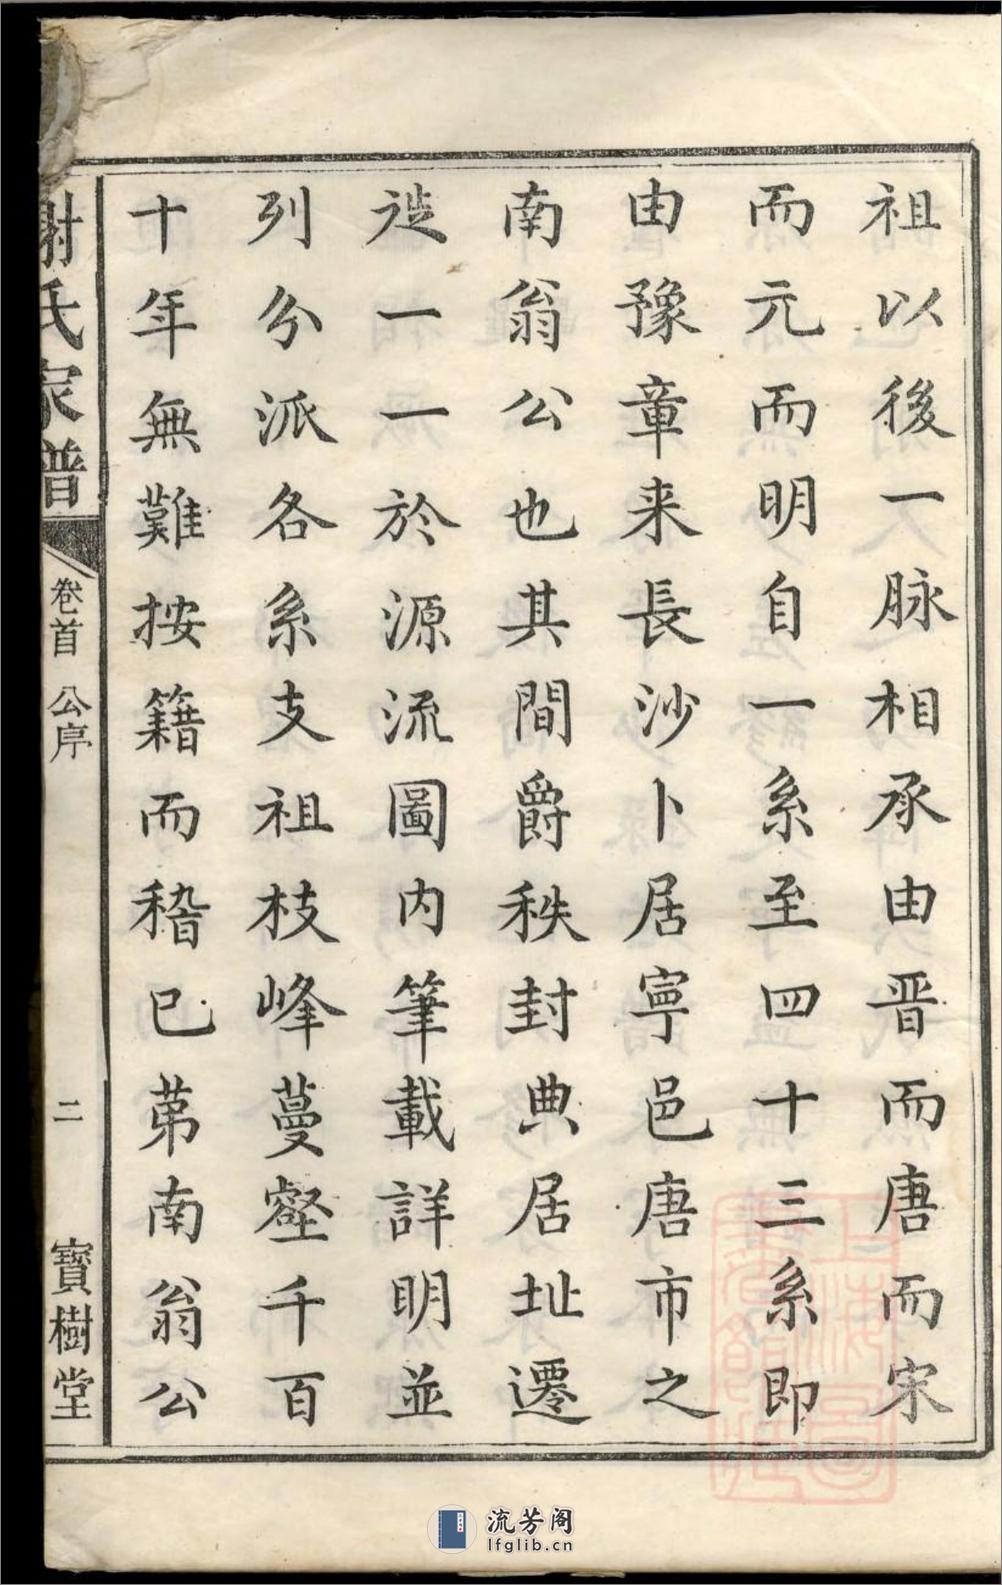 祖以後一脉相承由晋而唐而宋
而元而明自一系至四十三系即
由豫章来長沙卜居寜邑唐市之
南翁公也其間爵秩封典居址遷
徙一一於源流圖内筆載詳明並
列分派各系支祖枝峰蔓壑千百
十年無難按籍而稽已苐南翁公
謝氏家譜
卷首 公序
二
寶樹堂
上海圖書館藏
流芳阁
lfglib.cn